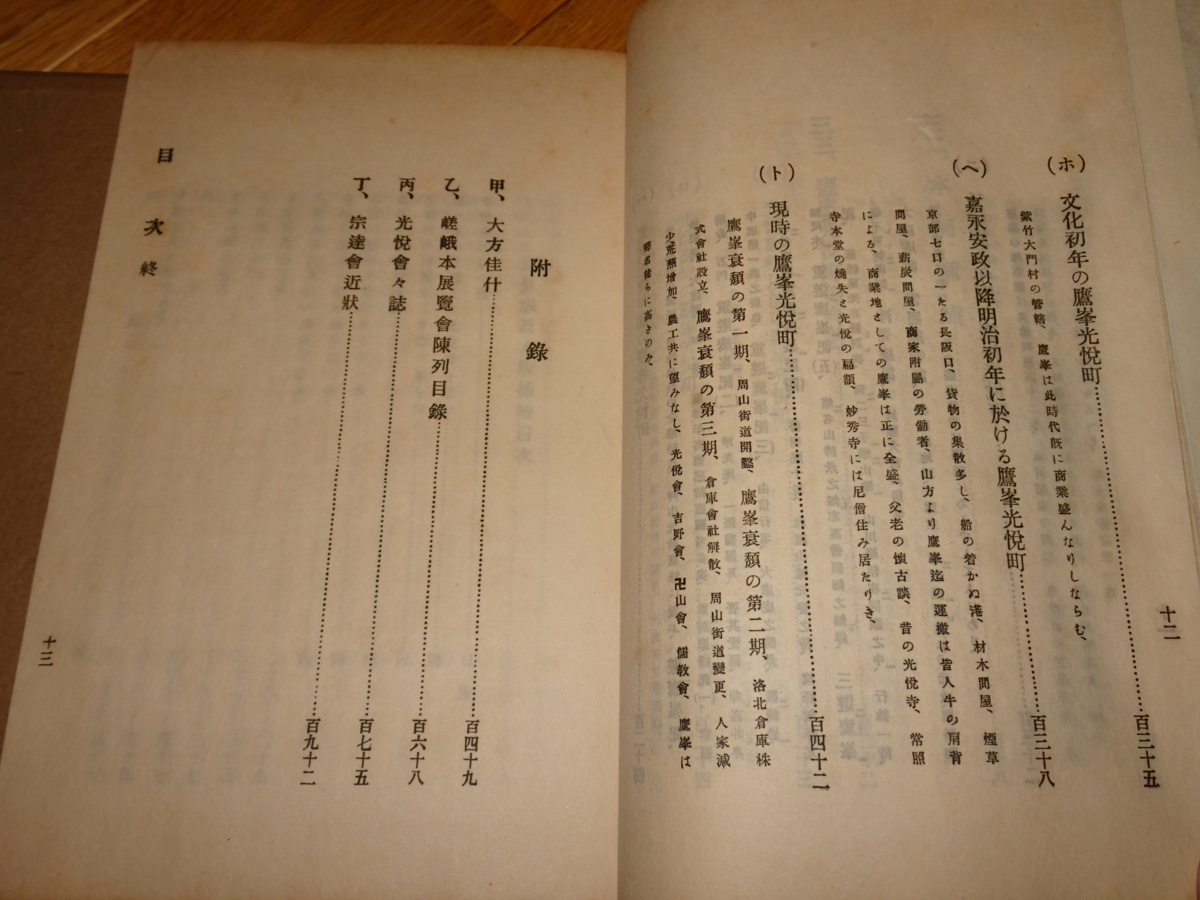 十二
(ホ) 文化初年の鷹峯光悦町……百三十五
紫竹大門村の管轄、鷹峯は此時代既に商業盛んなりしならむ、
(ヘ) 嘉永安政以降明治初年に於ける鷹峯光悦町……百三十八
京都七口の一たる長阪口、貨物の集散多し、船の着かぬ港、材木問屋、煙草
問屋、薪炭問屋、商家附屬の勞働者、山方より鷹峯迄の運搬は皆人牛の肩背
による、商業地としての鷹峯は正に全盛、父老の懷古談、昔の光悦寺、常照
寺本堂の燒失と光悦の扁額、妙秀寺には尼僧住み居たりき、
(ト) 現時の鷹峯光悦町……百四十二
鷹峯衰頽の第一期、周山街道開鑿、鷹峯衰頽の第二期、洛北倉庫株
式會社設立、鷹峯衰頽の第三期、倉庫會社解散、周山街道變更、人家減
少荒廢增加、農工共に望みなし、光悦會、吉野會、卍山會、儒教會、鷹峯は
其名徒らに高きのみ、
附錄
甲、大方佳什……百四十九
乙、嵯峨本展覽會陳列目錄……百六十八
丙、光悦會々誌……百七十五
丁、宗達會近狀……百九十二
目次終
十三